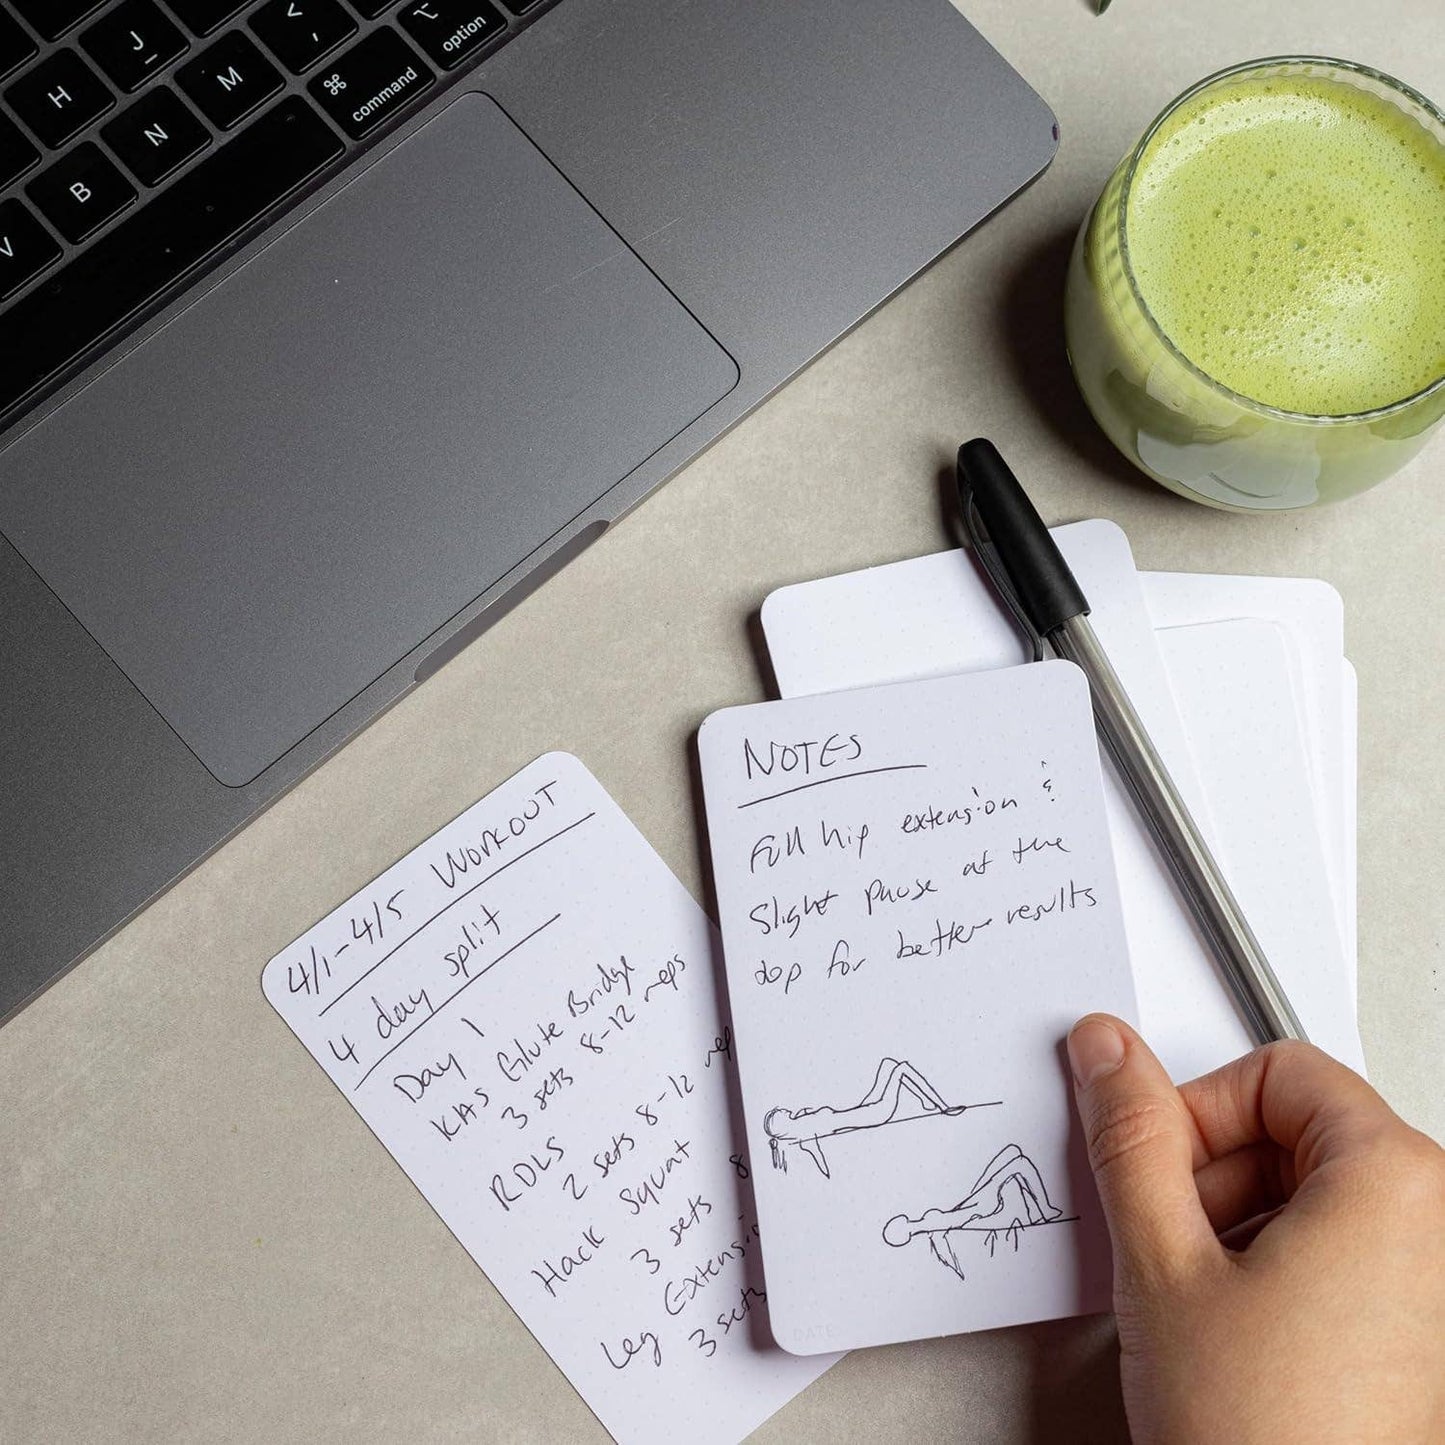 J
<
,
⌥
option
H
M
⌘
command
N
B
V
4/1-4/5 WORKOUT
4 day split
Day 1
KAS Glute Bridge
3 sets 8-12 reps
RDLS
2 sets 8-12 rep
Hack Squat
3 sets 8
Leg Extensio
3 sets
NOTES
Full hip extension &
Slight pause at the
top for better results
DATE: